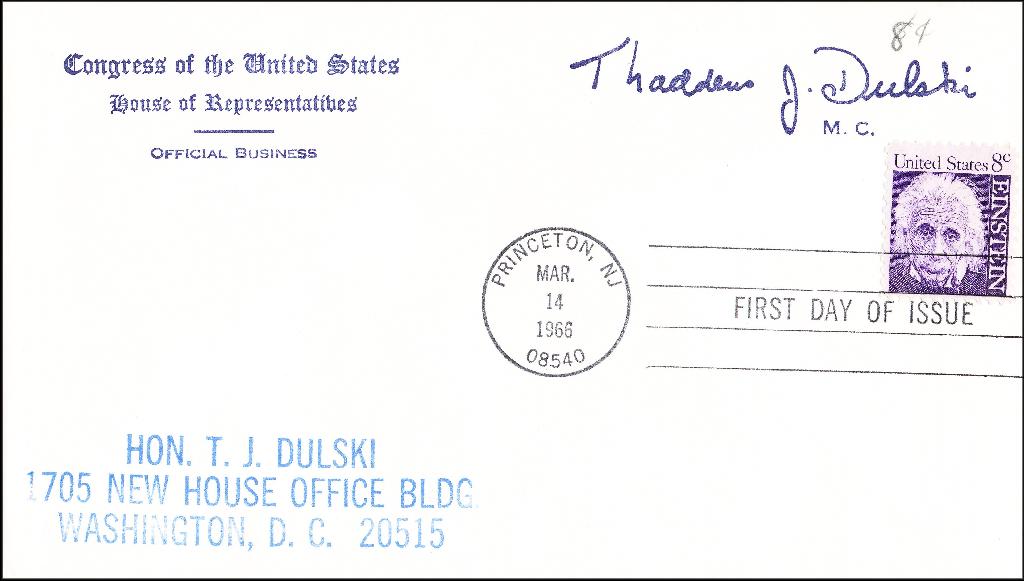 Congress of the United States
House of Representatives
OFFICIAL BUSINESS
8¢
Thaddeus J. Dulski
M. C.
United States 8c
EINSTEIN
PRINCETON, NJ
MAR.
14
1966
08540
FIRST DAY OF ISSUE
HON. T. J. DULSKI
1705 NEW HOUSE OFFICE BLDG.
WASHINGTON, D. C. 20515